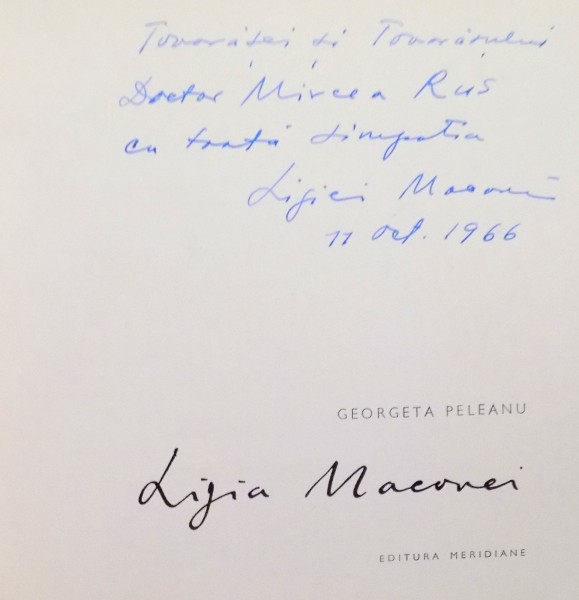 Tovarășei și Tovarășului
Doctor Mircea Rus
cu toată simpatia
Ligia Macovei
11 oct. 1966
GEORGETA PELEANU
Ligia Macovei
EDITURA MERIDIANE